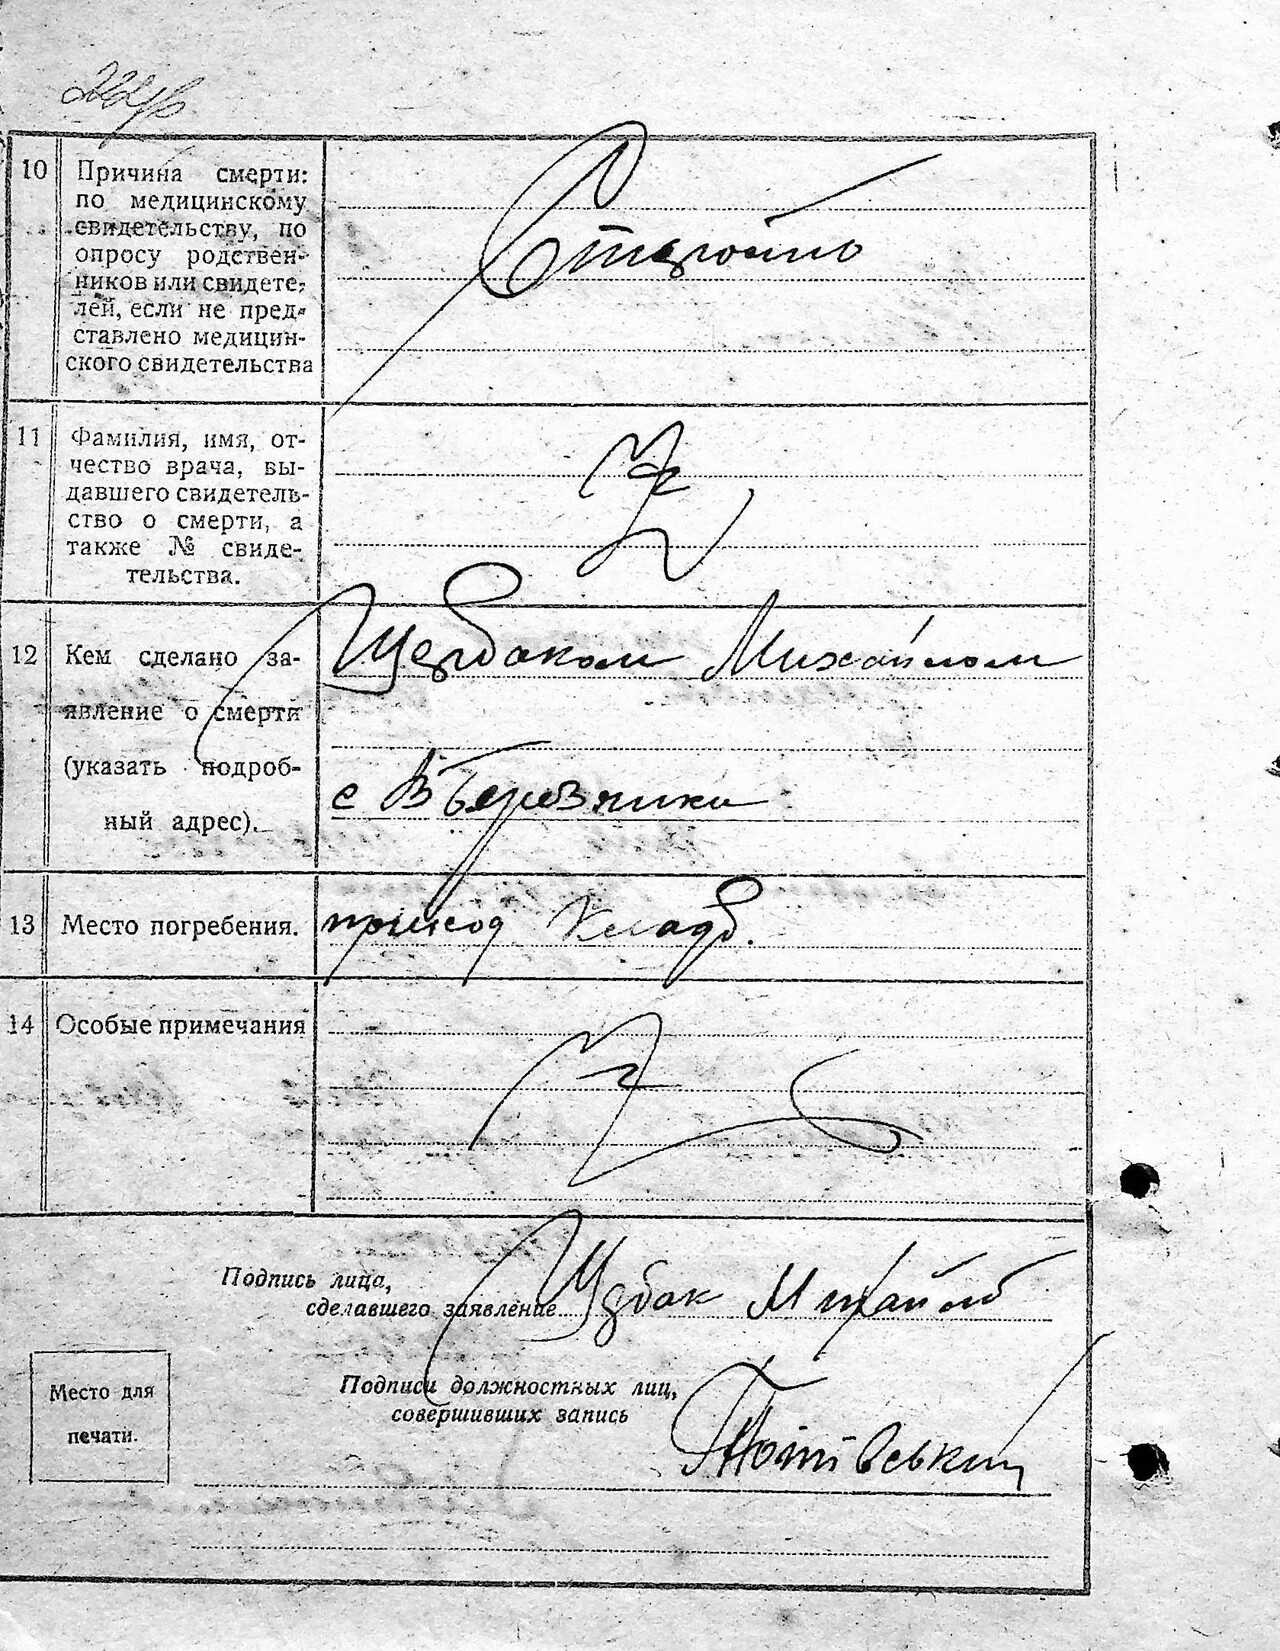 10
Причина смерти:
по медицинскому
свидетельству, по
опросу родствен-
ников или свидете-
лей, если не пред-
ставлено медицин-
ского свидетельства
11
Фамилия, имя, от-
чество врача, вы-
давшего свидетель-
ство о смерти, а
также № свиде-
тельства.
12
Кем сделано за-
явление о смерти
(указать подроб-
ный адрес).
Щербаком Михайлом
с В Березники
13
Место погребения.
приход Кладб.
14
Особые примечания
Подпись лица,
сделавшего заявление
Щрбак Михайло
Подписи должностных лиц,
совершивших запись
Место для
печати.